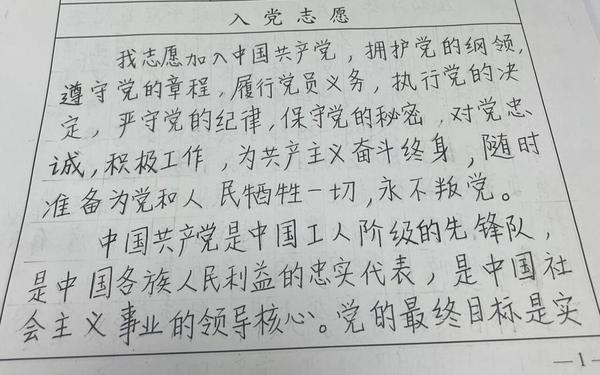 入党志愿
我志愿加入中国共产党，拥护党的纲领，
遵守党的章程，履行党员义务，执行党的决
定，严守党的纪律，保守党的秘密，对党忠
诚，积极工作，为共产主义奋斗终身，随时
准备为党和人民牺牲一切，永不叛党。
中国共产党是中国工人阶级的先锋队，
是中国各族人民利益的忠实代表，是中国社
会主义事业的领导核心。党的最终目标是实
—1